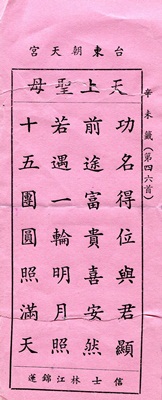 台東朝天宮
天上聖母
辛未籤(第四六首)
功名得位與君顯
前途富貴喜安然
若遇一輪明月照
十五團圓照滿天
信士林江錦蓮